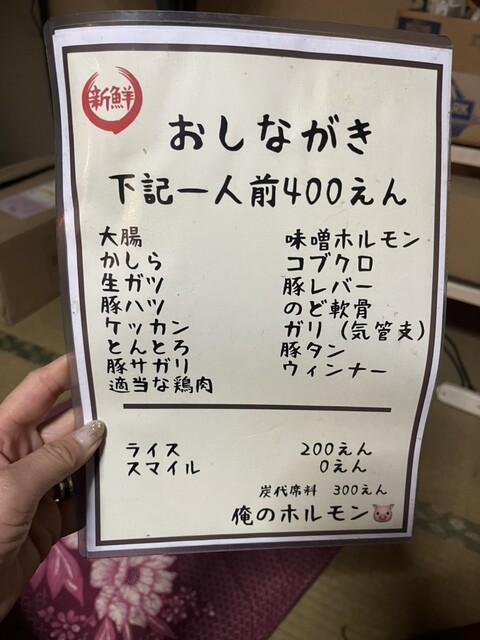 新鮮
おしながき
下記一人前400えん
大腸
かしら
生ガツ
豚ハツ
ケッカン
とんとろ
豚サガリ
適当な鶏肉
味噌ホルモン
コブクロ
豚レバー
のど軟骨
ガリ（気管支）
豚タン
ウィンナー
ライス 200えん
スマイル 0えん
炭代席料 300えん
俺のホルモン🐷